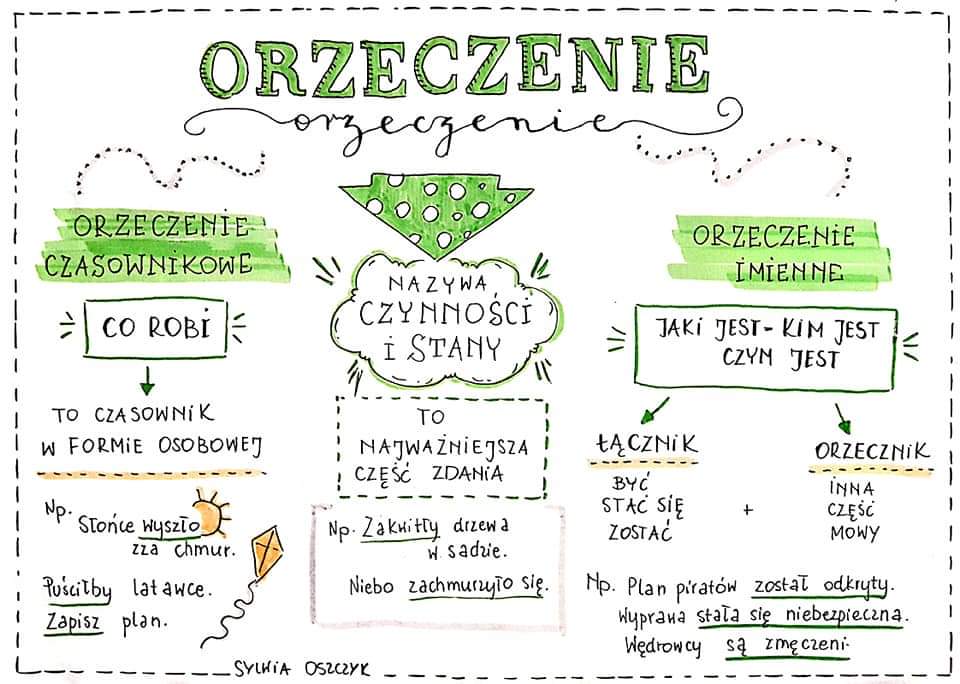 ORZECZENIE
orzeczenie
ORZECZENIE
CZASOWNIKOWE
CO ROBI
TO CZASOWNIK
W FORMIE OSOBOWEJ
Np. Słońce wyszło
zza chmur.
Puściłby latawce.
Zapisz plan.
NAZYWA
CZYNNOŚCI
I STANY
TO
NAJWAŻNIEJSZA
CZĘŚĆ ZDANIA
Np. Zakwitły drzewa
w sadzie.
Niebo zachmurzyło się.
ORZECZENIE
IMIENNE
JAKI JEST - KIM JEST
CZYM JEST
ŁĄCZNIK
BYĆ
STAĆ SIĘ
ZOSTAĆ
+
ORZECZNIK
INNA
CZĘŚĆ
MOWY
Np. Plan piratów został odkryty.
Wyprawa stała się niebezpieczna.
Wędrowcy są zmęczeni.
SYLWIA OSZCZYK